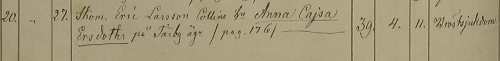 20. „ 27. Thom. Eric Larsson Collins hu Anna Cajsa 39. 4. 11. Bröstsjukdom
Ersdotter på Täby äga / pag. 176 /